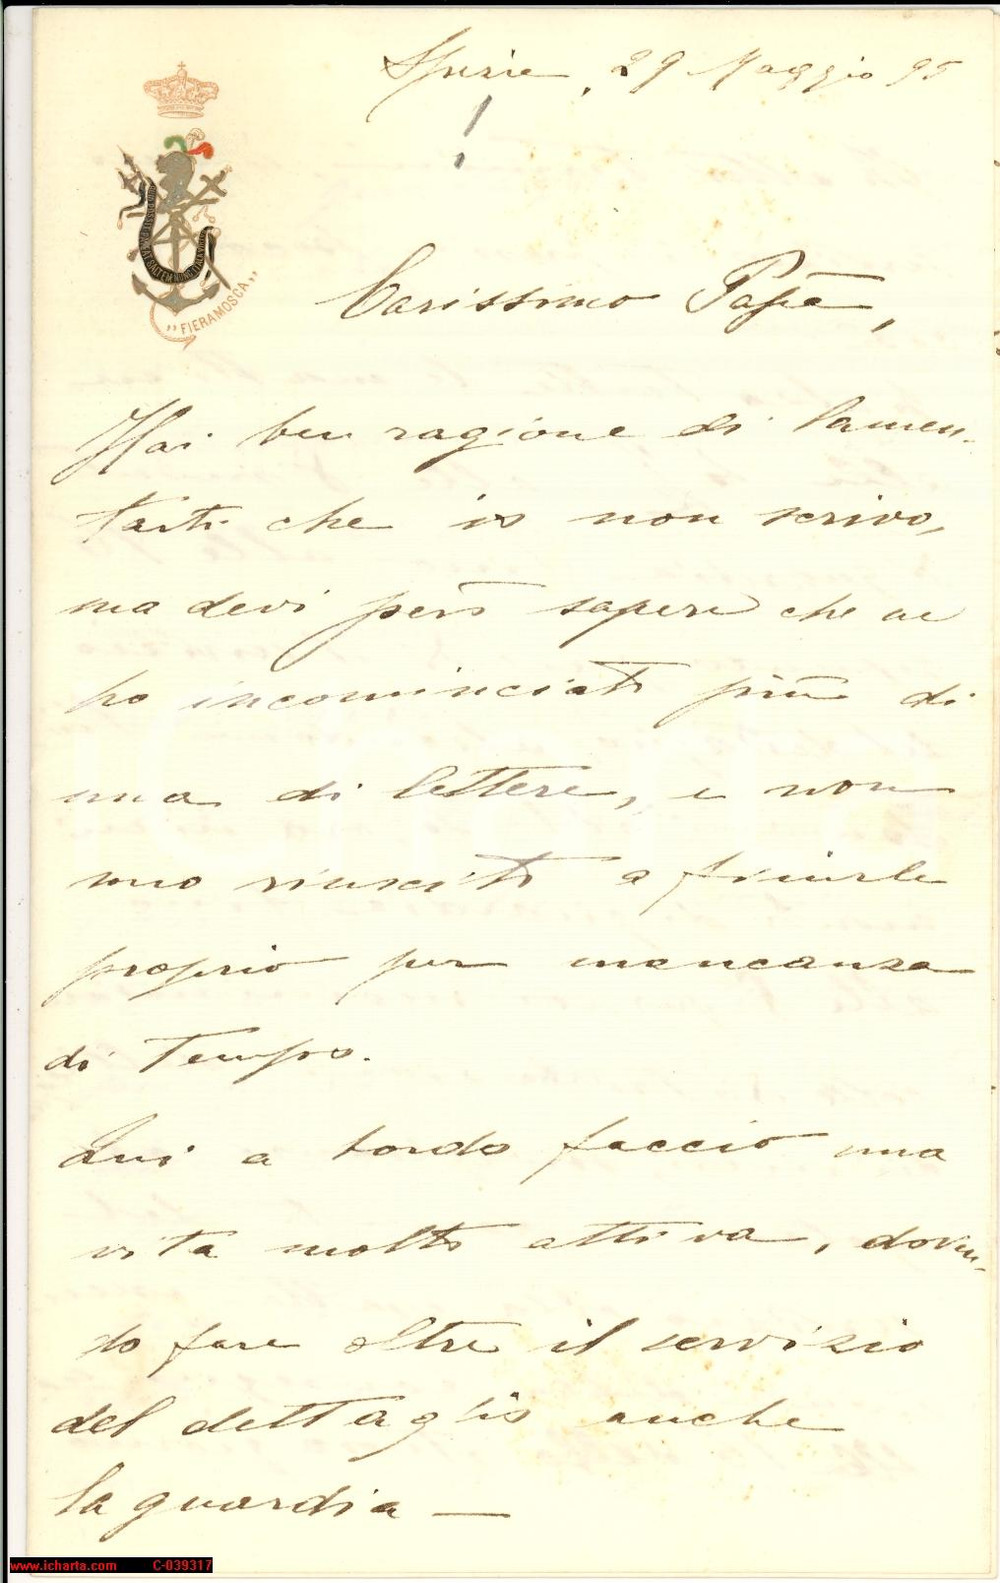 Spezia, 29 Maggio 95
!
„FIERAMOSCA„
Carissimo Papà,
Hai ben ragione di lamen-
tarti che io non scrivo,
ma devi però sapere che ne
ho incominciato più di
una di lettere, e non
sono riuscito a finirle
proprio per mancanza
di tempo.
Qui a bordo faccio una
vita molto attiva, doven-
do fare oltre il servizio
del dettaglio anche
la guardia —
www.icharta.com C-039317